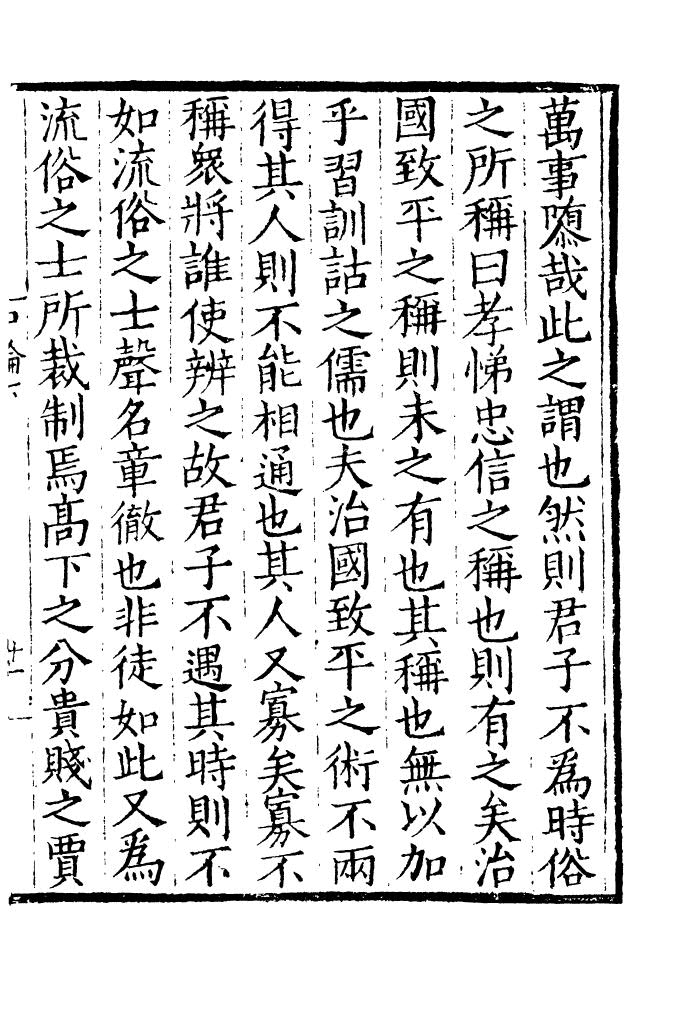 萬事隳哉此之謂也然則君子不爲時俗
之所稱曰孝悌忠信之稱也則有之矣治
國致平之稱則未之有也其稱也無以加
乎習訓詁之儒也夫治國致平之術不兩
得其人則不能相通也其人又寡矣寡不
稱衆將誰使辨之故君子不遇其時則不
如流俗之士聲名章徹也非徒如此又爲
流俗之士所裁制焉髙下之分貴賤之賈